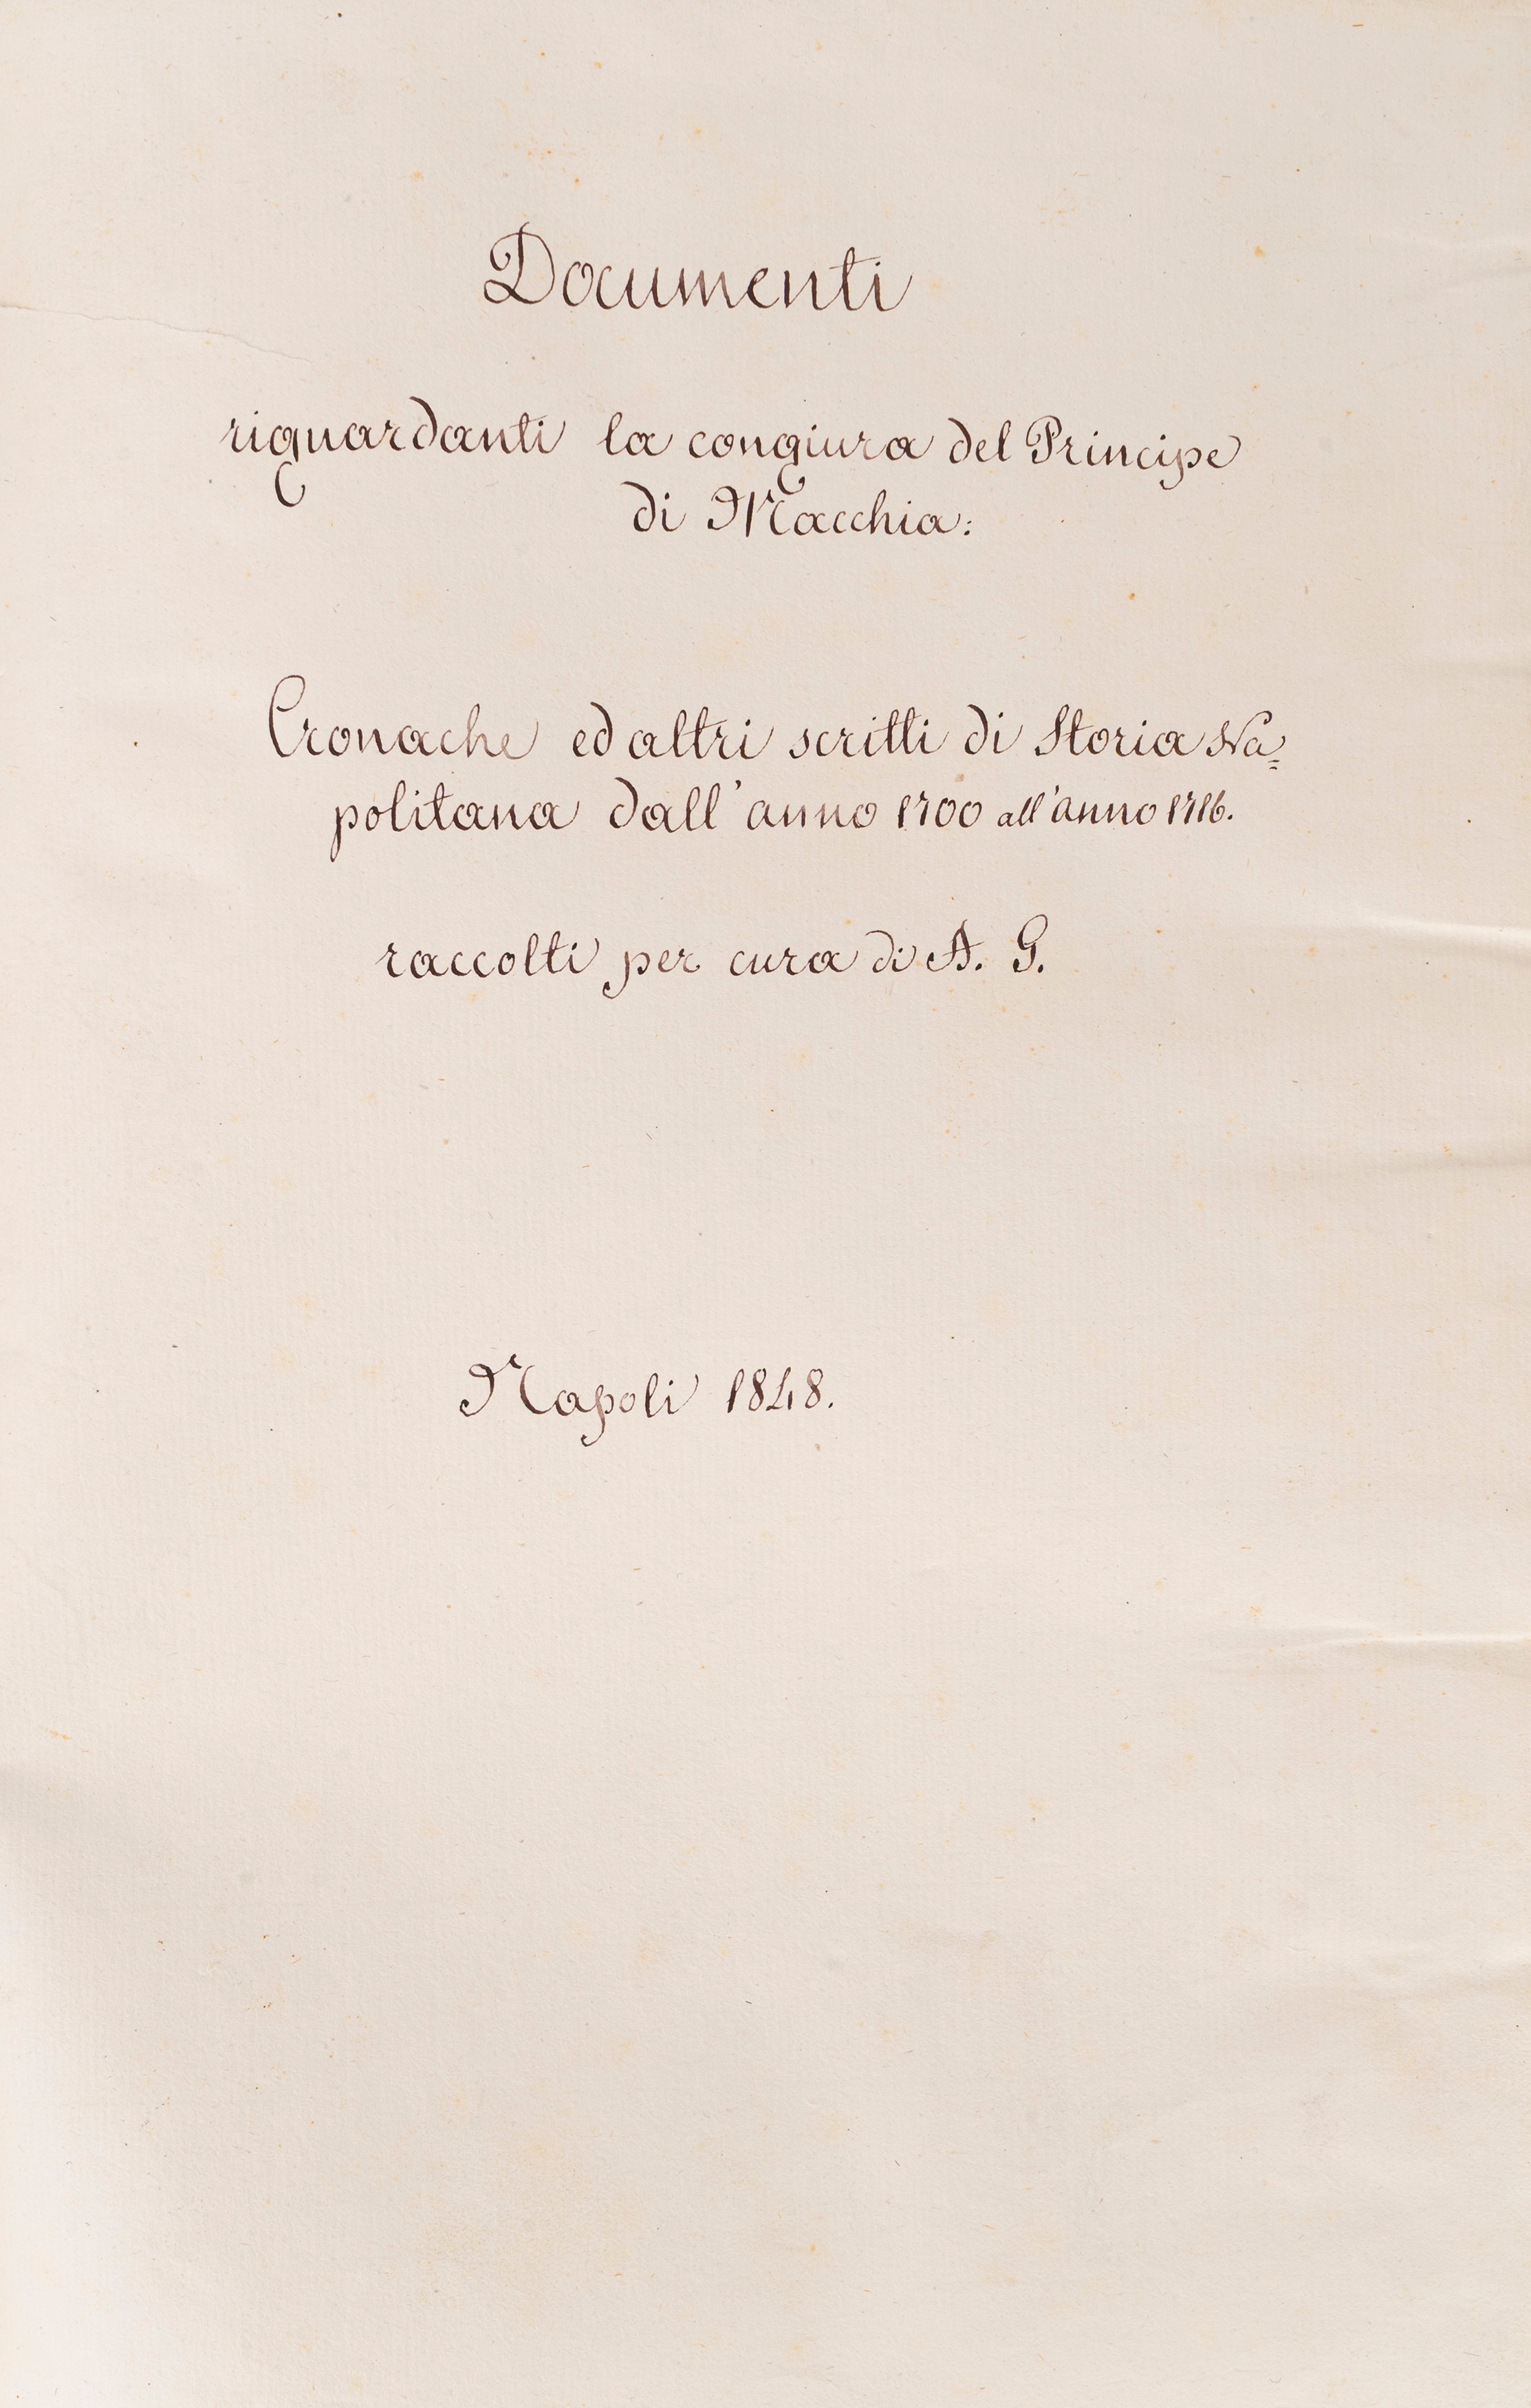 Documenti
riguardanti la congiura del Principe
di Macchia:
Cronache ed altri scritti di Storia Na=
politana dall'anno 1700 all'anno 1716.
raccolti per cura di A. G.
Napoli 1848.